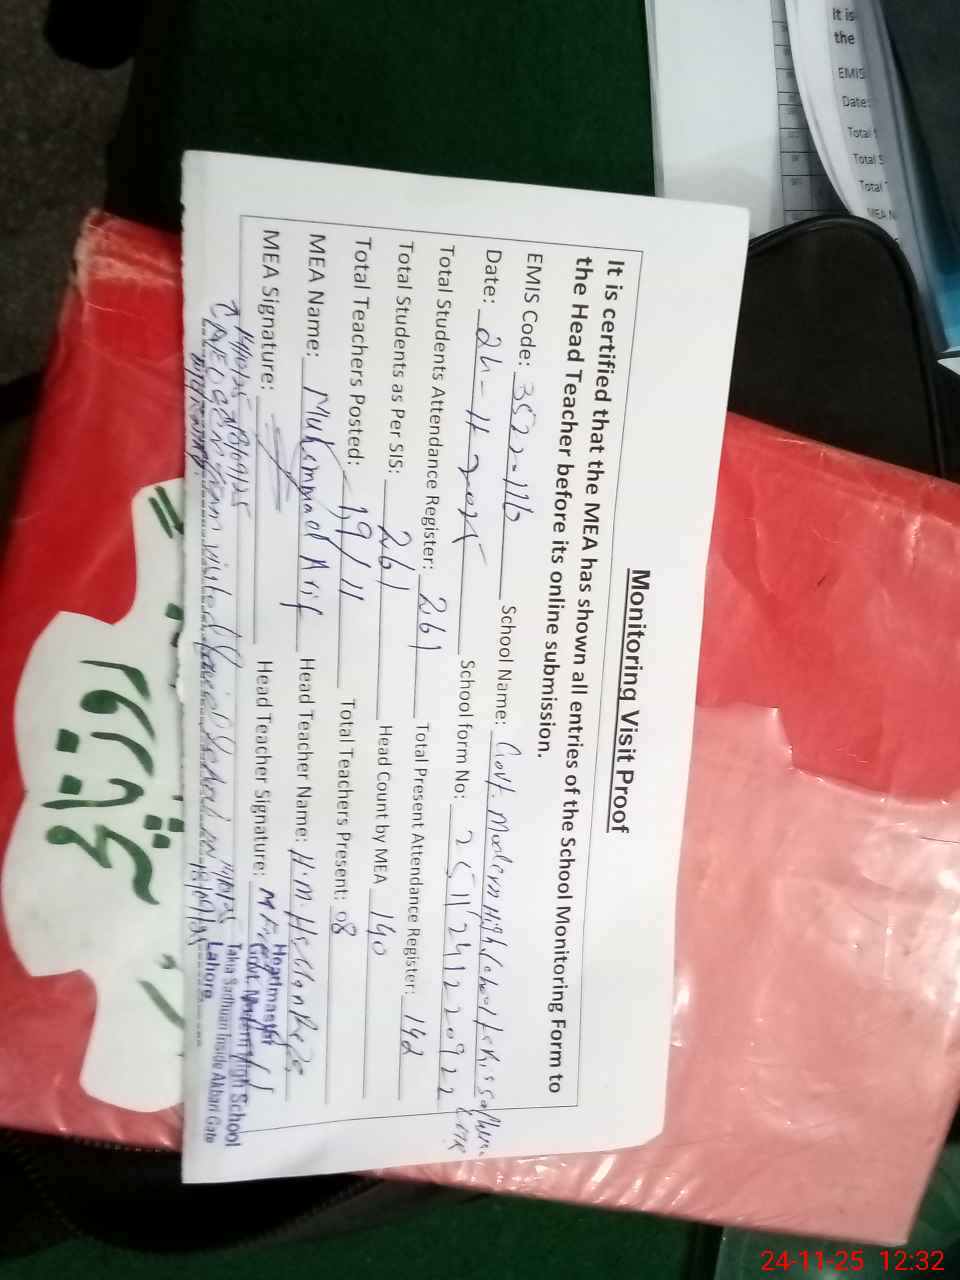 Monitoring Visit Proof
It is certified that the MEA has shown all entries of the School Monitoring Form to
the Head Teacher before its online submission.
EMIS Code: School Name: Govt. Modern High
Date: 24-11-2025 School form No: 2511241220922
Total Students Attendance Register: 261 Total Present Attendance Register: 142
Total Students as Per SIS: 261 Head Count by MEA 140
Total Teachers Posted: 19/11 Total Teachers Present: 08
MEA Name: Muhammad Arif Head Teacher Name:
MEA Signature: Head Teacher Signature:
Headmaster
Govt. Modern High School
Takia Sadhuan Inside Akbari Gate
Lahore
روزنامچہ
It is
the
EMIS
Date:
Total
Total S
Total
MEA N
24-11-25 12:32